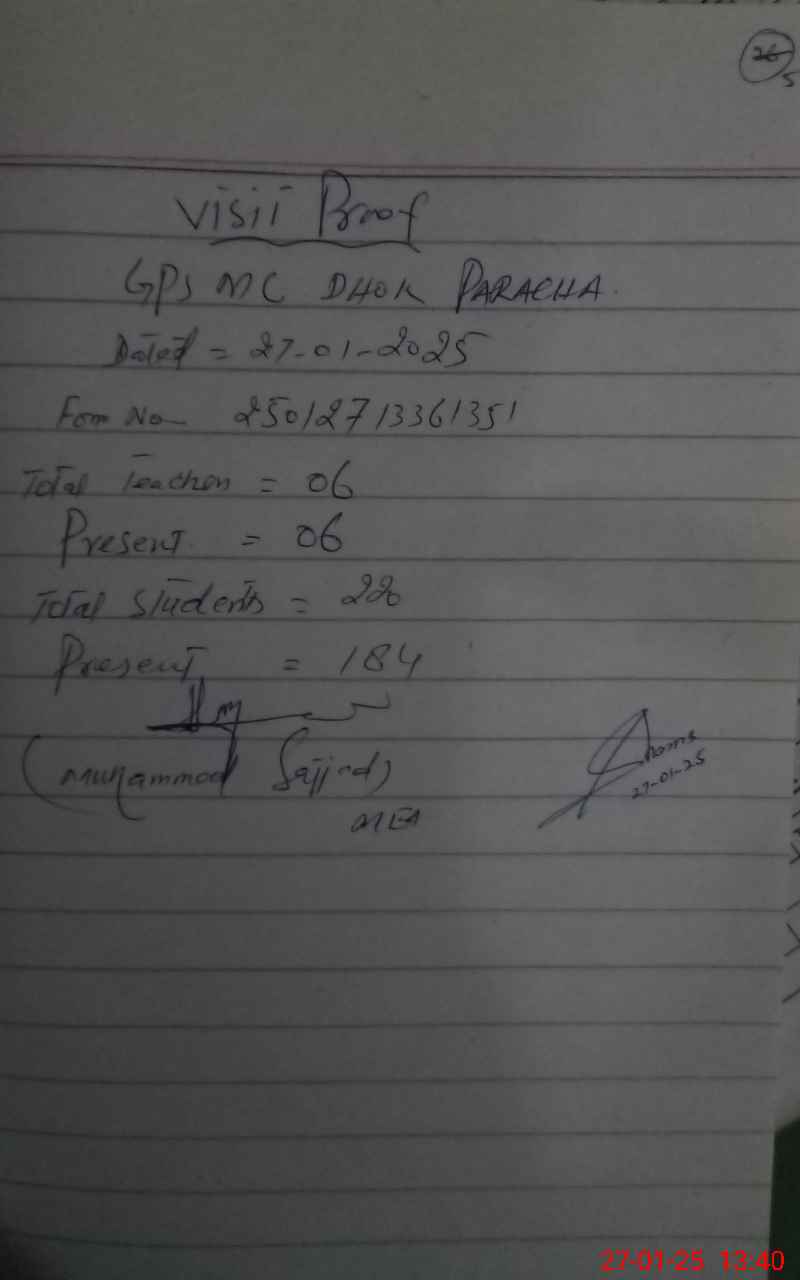 26
5
Visit Proof
GPS MC DHOK PARACHA.
Dated = 27-01-2025
Form No 25012713361351
Total Teachers = 06
Present = 06
Total Students = 220
Present = 184
(Muhammad Sajjad)
MEA
27-01-25
27-01-25 13:40